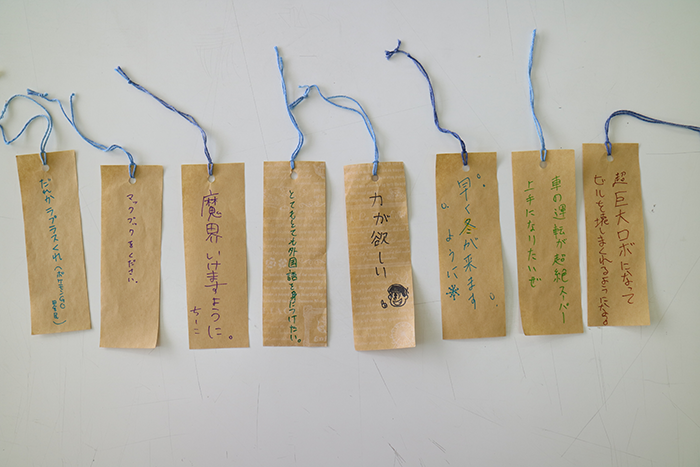 だれか ラプラスくれ(ポケモンGO
マックブックをください。
魔界 いけますように。
ちーこ
とてもとても外国語を身につけたい。
力が欲しい
早く冬が来ます
ように
車の運転が超絶スーパー
上手になりたいぞ
超巨大ロボになって
ビルを壊しまくれるようになる